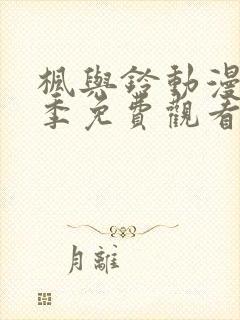 楓與鈴動漫
季免費觀看
月離